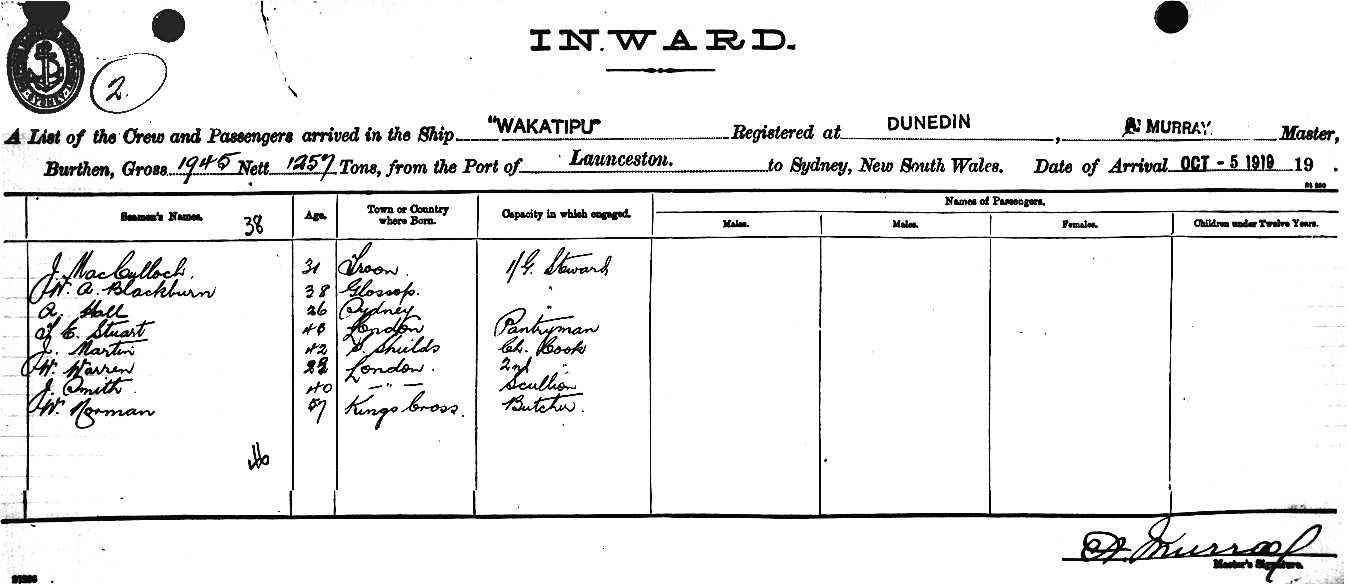 SYDNEY
2.
IN.WARD.
A List of the Crew and Passengers arrived in the Ship "WAKATIPU" Registered at DUNEDIN, A. MURRAY. Master,
Burthen, Gross 1945 Nett 1257 Tons, from the Port of Launceston. to Sydney, New South Wales. Date of Arrival OCT - 5 1919 19 .
Seamen's Names. 38 Age. Town or Country where Born. Capacity in which engaged. Names of Passengers.
Males. Males. Females. Children under Twelve Years.
J. MacCulloch. 31 Troon. 1/G. Steward
W. A. Blackburn 38 Glossop. "
A. Hall 26 Sydney "
E. Stuart 48 London Pantryman
J. Martin 42 S. Shields Ch. Cook
W. Warren London. 2nd "
J. Smith 40 — " — Scullion
W. Norman 57 Kings Cross. Butcher.
46
A. Murray
Master's Signature.